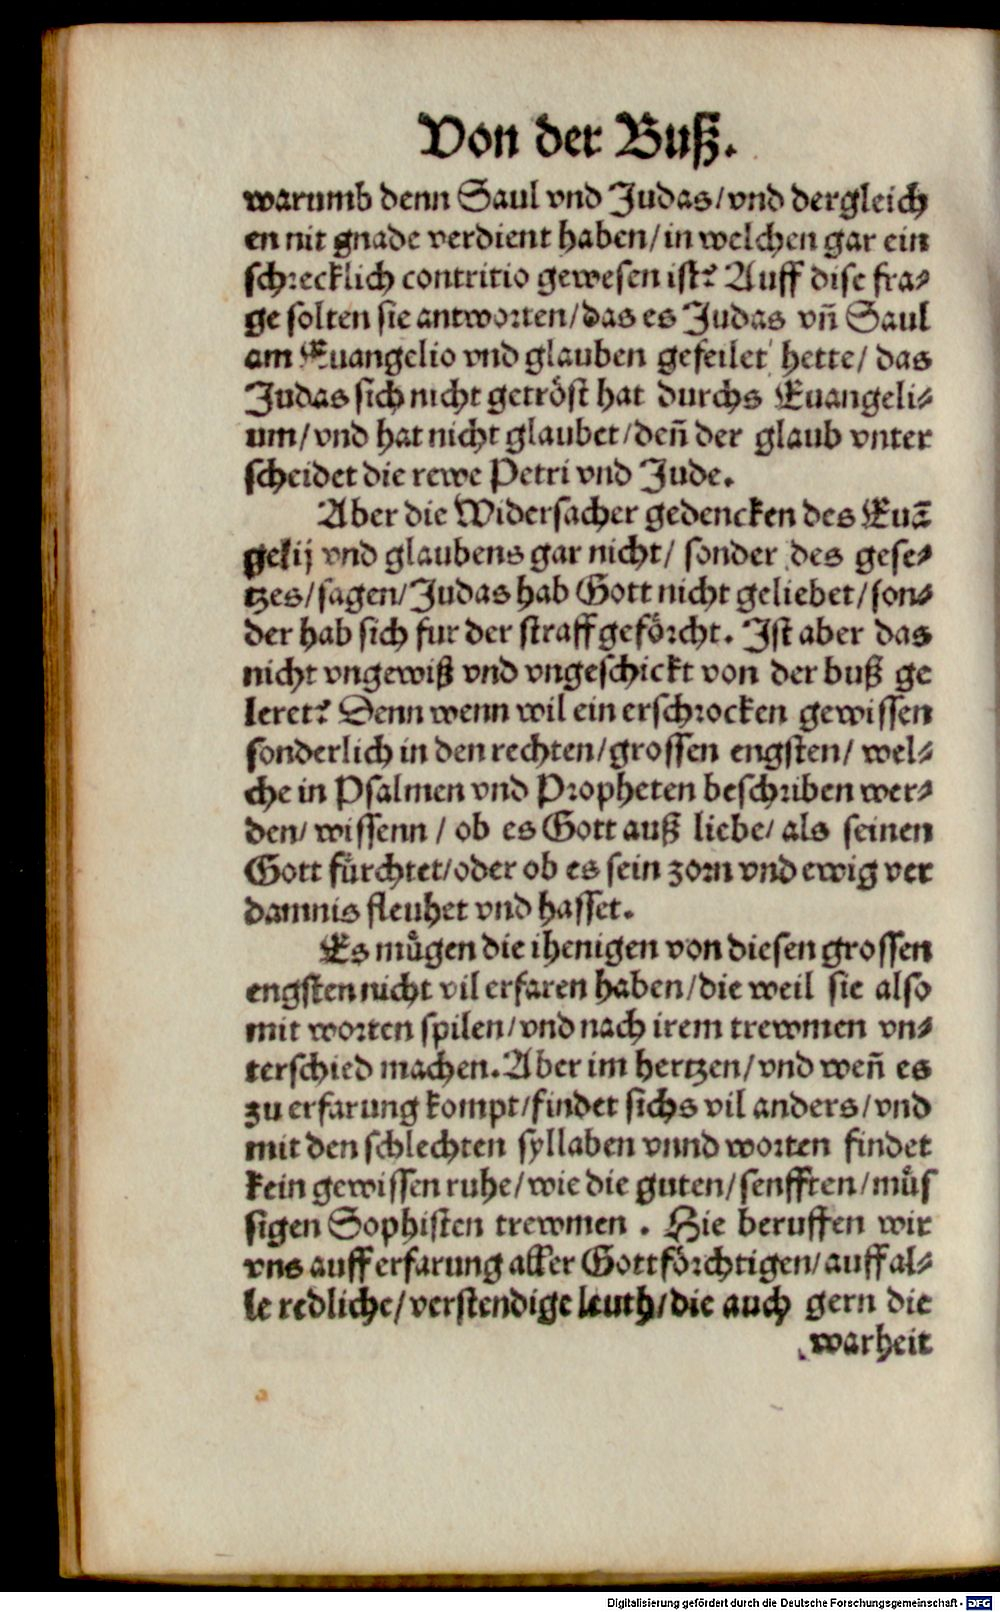 Von der Buß.
warumb denn Saul vnd Judas/vnd dergleich
en nit gnade verdient haben/in welchen gar ein
schrecklich contritio gewesen ist? Auff dise fra⸗
ge solten sie antworten/das es Judas vñ Saul
am Euangelio vnd glauben gefeilet hette/ das
Judas sich nicht getröst hat durchs Euangeli⸗
um/vnd hat nicht glaubet/deñ der glaub vnter
scheidet die rewe Petri vnd Jude.
Aber die Widersacher gedencken des Euã
gelij vnd glaubens gar nicht/ sonder des gese⸗
tzes/sagen/Judas hab Gott nicht geliebet/son⸗
der hab sich fur der straff geförcht. Ist aber das
nicht vngewiß vnd vngeschickt von der buß ge
leret? Denn wenn wil ein erschrocken gewissen
sonderlich in den rechten/grossen engsten/ wel⸗
che in Psalmen vnd Propheten beschriben wer⸗
den/ wissenn / ob es Gott auß liebe/ als seinen
Gott fürchtet/oder ob es sein zorn vnd ewig ver
damnis fleuhet vnd hasset.
Es mügen die ihenigen von diesen grossen
engsten nicht vil erfaren haben/die weil sie also
mit worten spilen/vnd nach irem trewmen vn⸗
terschied machen. Aber im hertzen/vnd weñ es
zu erfarung kompt/findet sichs vil anders/vnd
mit den schlechten syllaben vnnd worten findet
kein gewissen ruhe/wie die guten/senfften/müs
sigen Sophisten trewmen . Hie beruffen wir
vns auff erfarung aller Gottförchtigen/auff al⸗
le redliche/verstendige leuth/die auch gern die
warheit
Digitalisierung gefördert durch die Deutsche Forschungsgemeinschaft - DFG